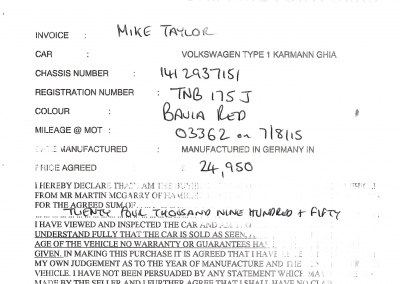 INVOICE : MIKE TAYLOR
CAR : VOLKSWAGEN TYPE 1 KARMANN GHIA
CHASSIS NUMBER : 1412937151
REGISTRATION NUMBER : TNB 175 J
COLOUR : BAVIA RED
MILEAGE @ MOT : 03362 on 7/8/15
DATE MANUFACTURED : MANUFACTURED IN GERMANY IN
PRICE AGREED : 24,950
I HEREBY DECLARE THAT I AM THE
FROM MR MARTIN MCGARY OF
FOR THE AGREED SUM OF
TWENTY FOUR THOUSAND NINE HUNDRED + FIFTY
I HAVE VIEWED AND INSPECTED THE CAR AND
UNDERSTAND FULLY THAT THE CAR IS SOLD AS SEEN
AGE OF THE VEHICLE NO WARRANTY OR GUARANTEES
GIVEN. IN MAKING THIS PURCHASE IT IS AGREED THAT I
MY OWN JUDGEMENT AS TO THE YEAR OF MANUFACTURE AND THE
VEHICLE. I HAVE NOT BEEN PERSUADED BY ANY STATEMENT WHICH
MADE BY THE SELLER AND I FURTHER AGREE THAT I SHALL HAVE NO